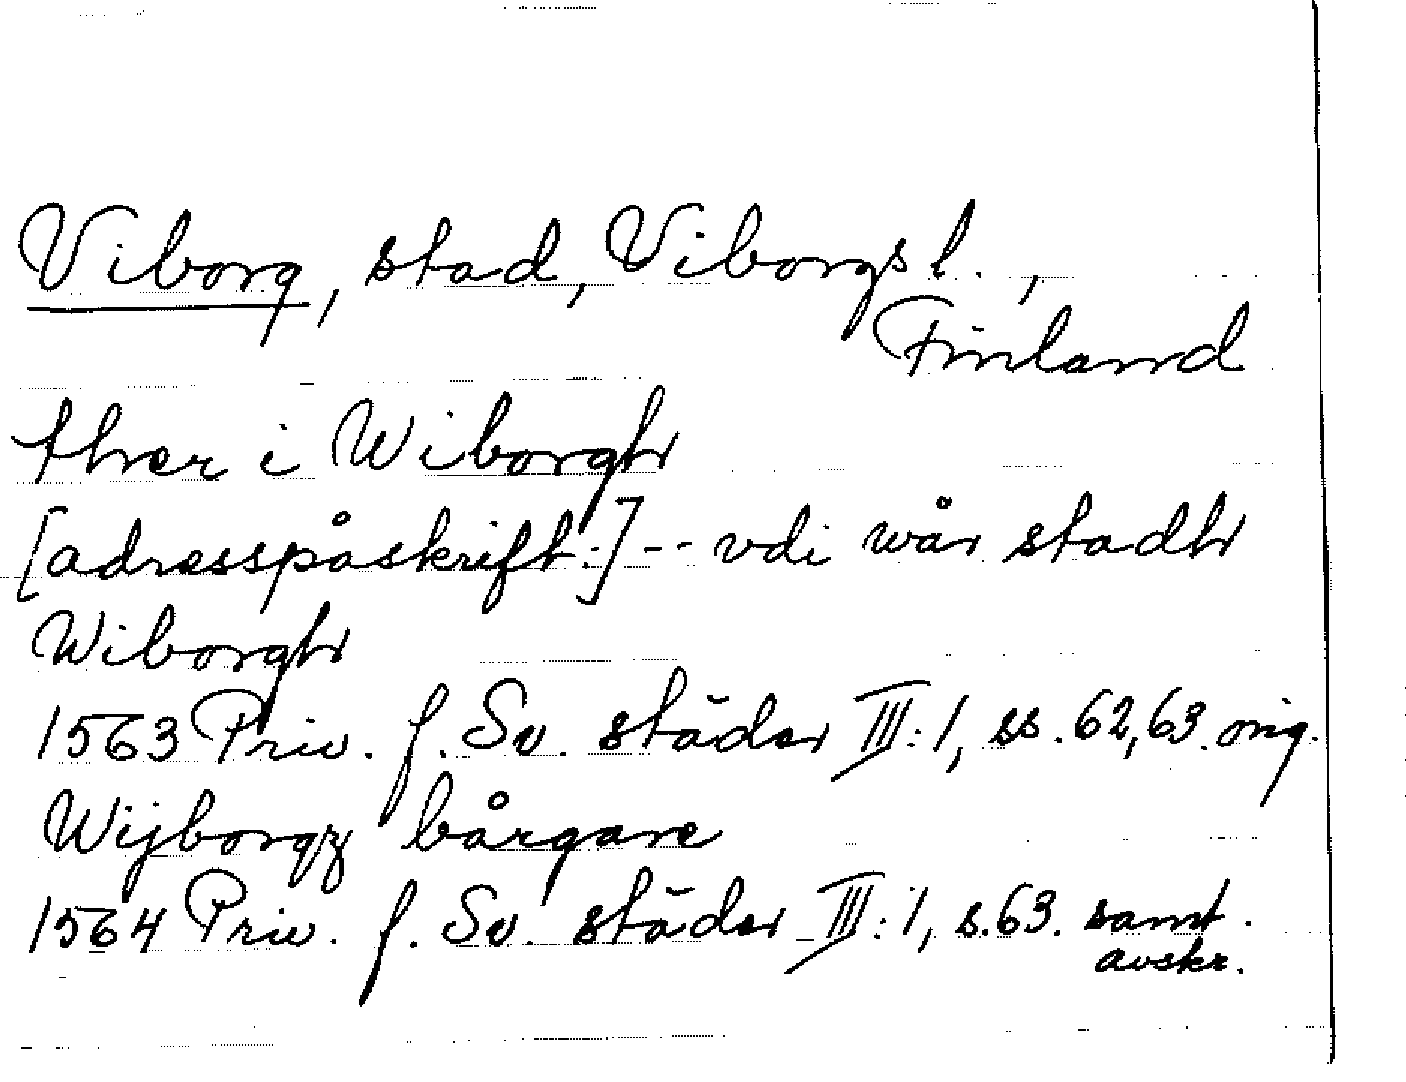 Viborg, stad, Viborgs l.,
Finland
ther i Wiborgh
[adresspåskrift:] -- vdi wår stadh
Wiborgh
1563 Priv. f. Sv. städer III:1, ss. 62, 63. orig.
Wijborgz bårgare
1564 Priv. f. Sv. städer III:1, s. 63. samt.
avskr.